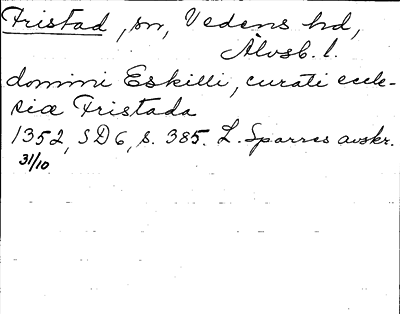 Fristad, sn, Vedens hd,
Älvsb. l.
domini Eskilli, curati eccle-
siæ Fristada
1352, SD 6, s. 385. L. Sparres avskr.
31/10